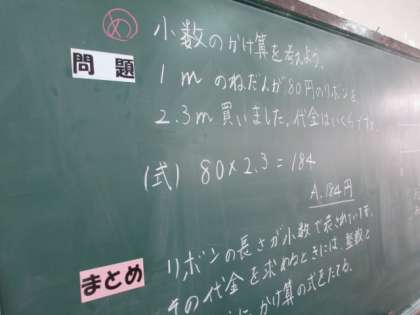 め
小数のかけ算を考えよう。
問題
1mのねだんが80円のリボンを
2.3m買いました。代金はいくらですか。
(式) 80×2.3=184
A.184円
まとめ
リボンの長さが小数で表されていても、
その代金を求めるときには、整数と
に、かけ算の式をたてる。